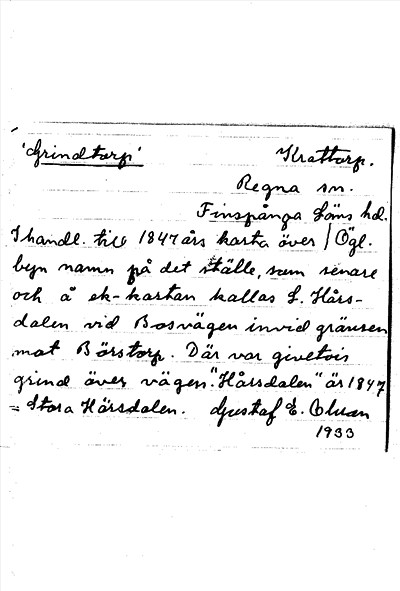 'Grindtorp' Krattorp.
Regna sn.
Finspånga läns hd.
I handl. till 1847 års karta över / Ögl.
byn namn på det ställe, som senare
och å ek-kartan kallas L. Hårs-
dalen vid Bosvägen invid gränsen
mot Börstorp. Där var givetvis
grind över vägen. "Hårsdalen" är 1847
= Stora Hårsdalen. Gustaf E. Olsson
1933